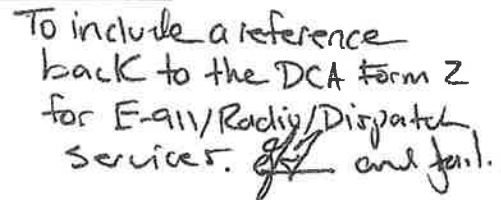 To include a reference
back to the DCA Form 2
for E-911/Radio/Dispatch
services. and jail.